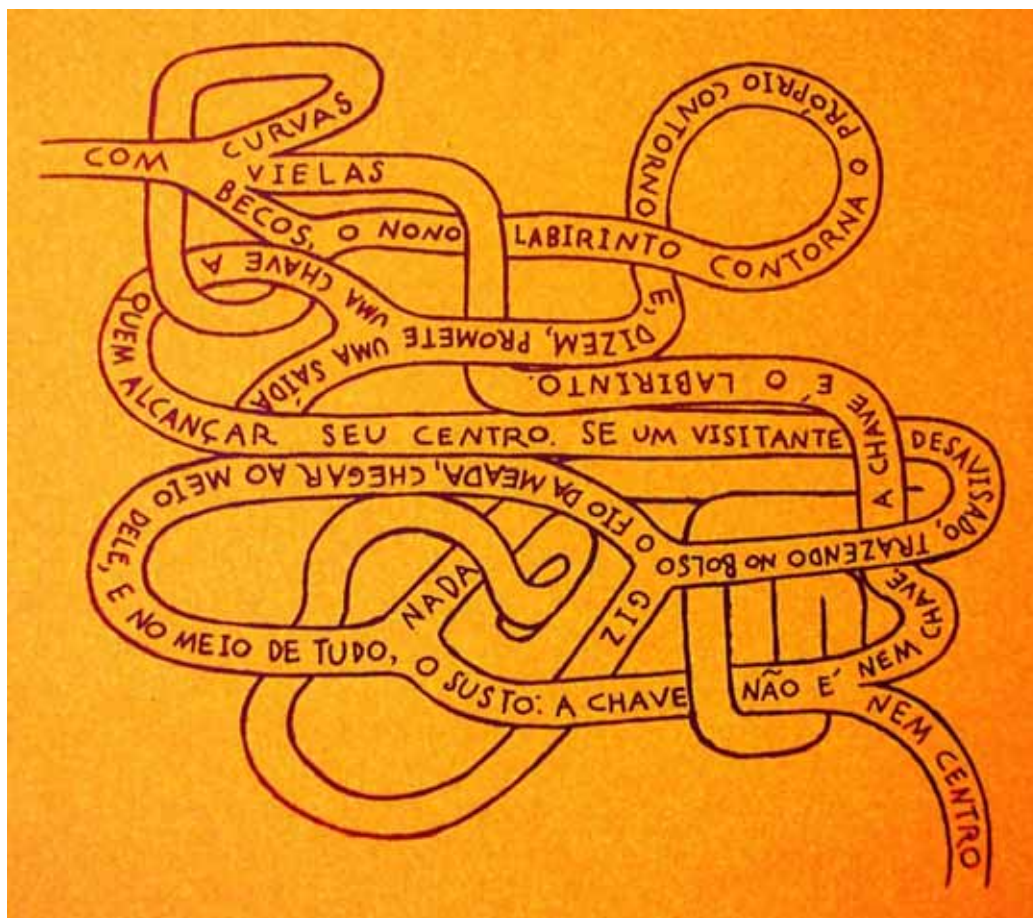 COM
CURVAS
VIELAS
BECOS, O NONO LABIRINTO CONTORNA O PRÓPRIO CONTORNO
E, DIZEM, PROMETE
UMA SAÍDA
UMA CHAVE A QUEM ALCANÇAR SEU CENTRO. SE UM VISITANTE DESAVISADO, TRAZENDO NO BOLSO
GIZ
O FIO DA MEADA, CHEGAR AO MEIO DELE, E NO MEIO DE TUDO,
NADA
O SUSTO: A CHAVE NÃO É
NEM CHAVE.
NEM CENTRO
A CHAVE É O LABIRINTO.